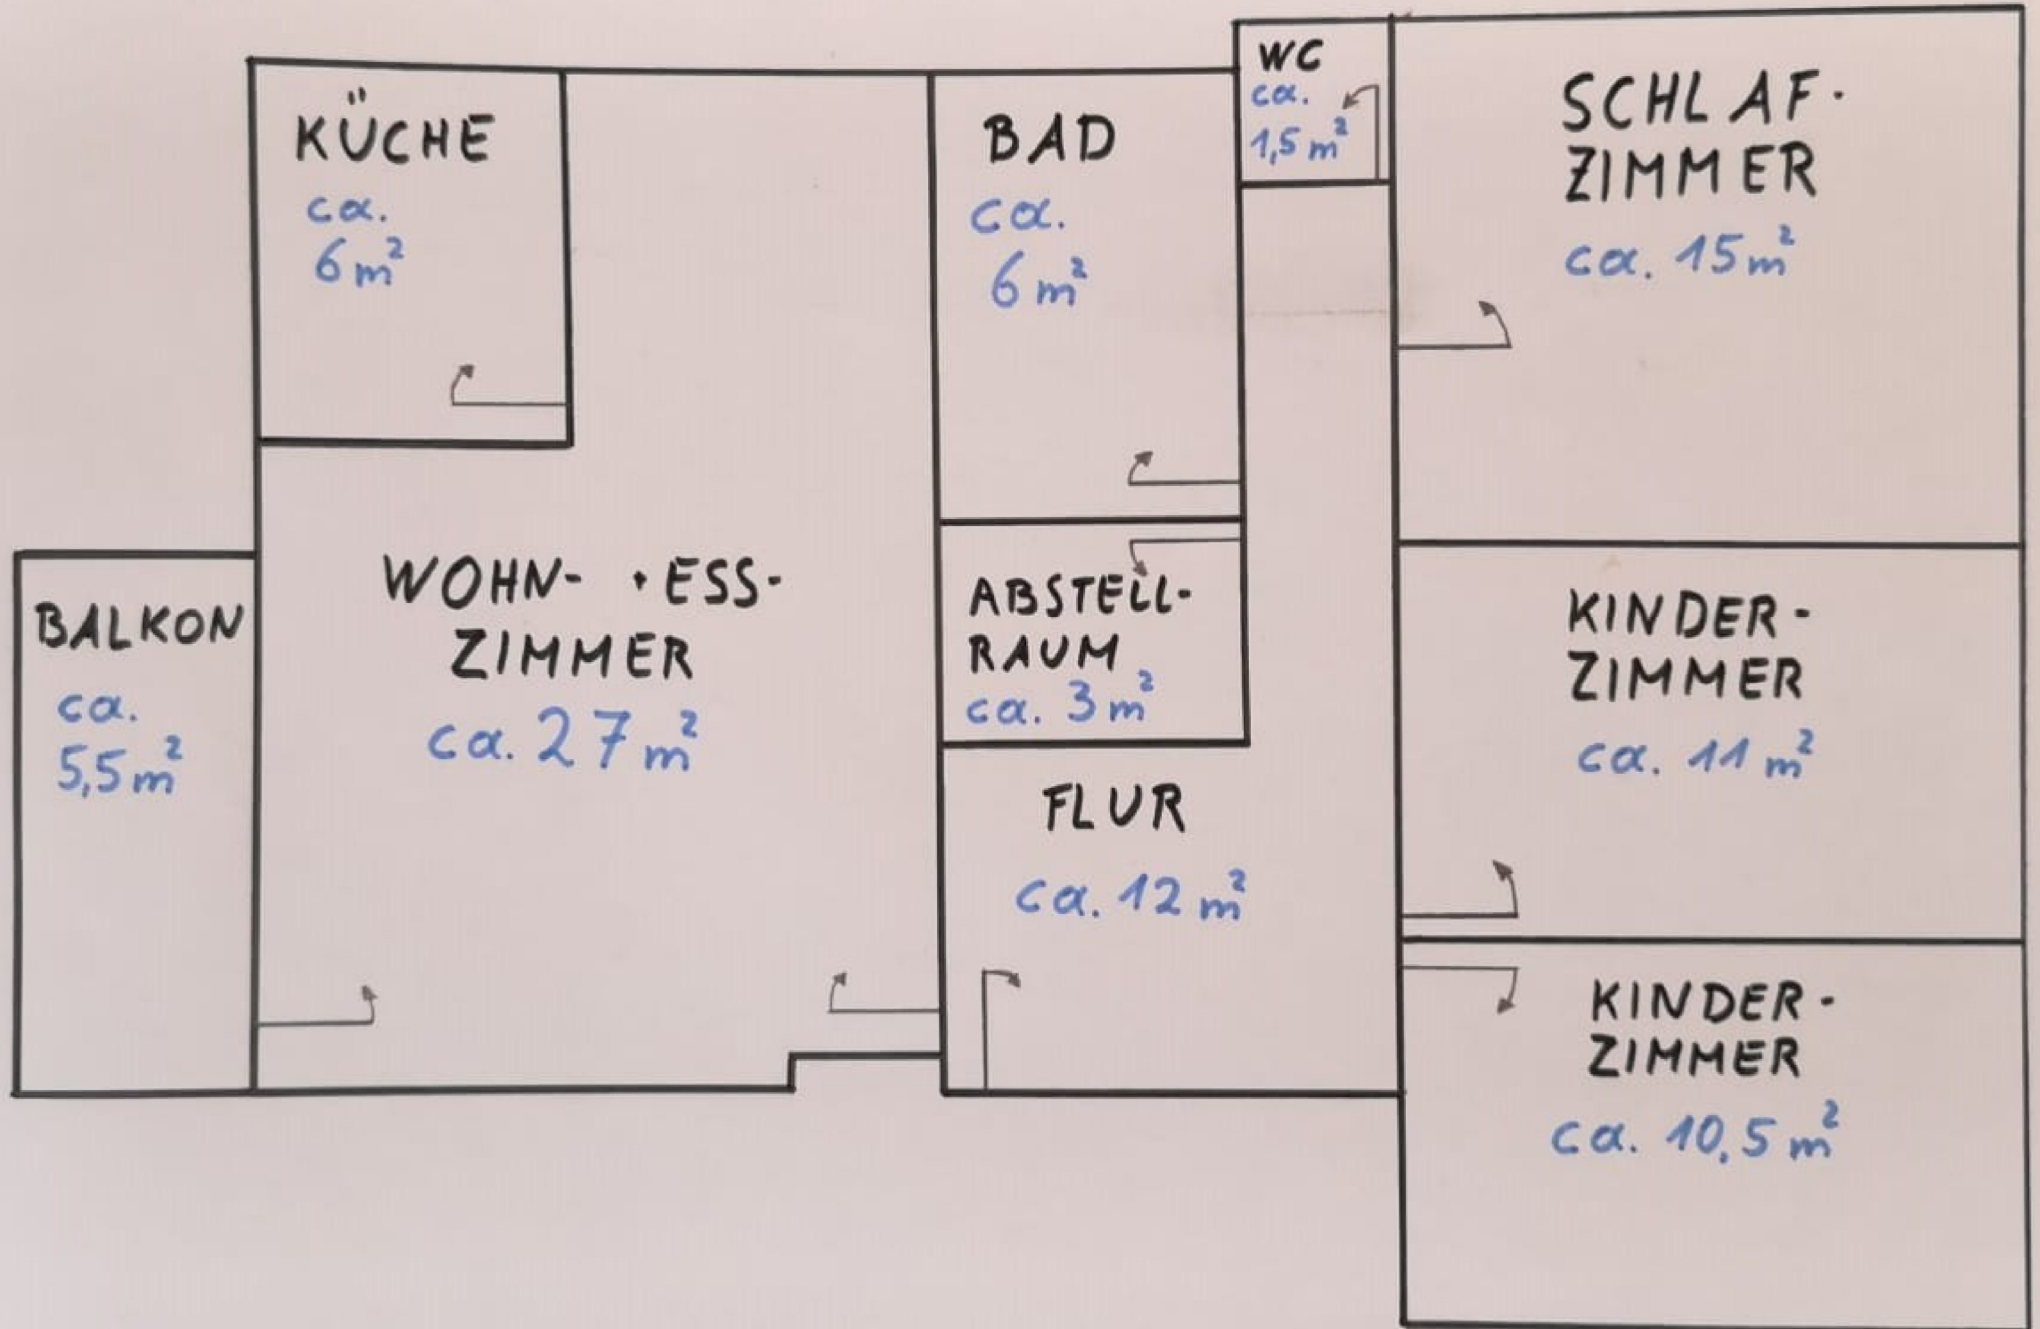 KÜCHE
ca.
6 m²
BAD
ca.
6 m²
WC
ca.
1,5 m²
SCHLAF-
ZIMMER
ca. 15 m²
BALKON
ca.
5,5 m²
WOHN- + ESS-
ZIMMER
ca. 27 m²
ABSTELL-
RAUM
ca. 3 m²
FLUR
ca. 12 m²
KINDER-
ZIMMER
ca. 11 m²
KINDER-
ZIMMER
ca. 10,5 m²